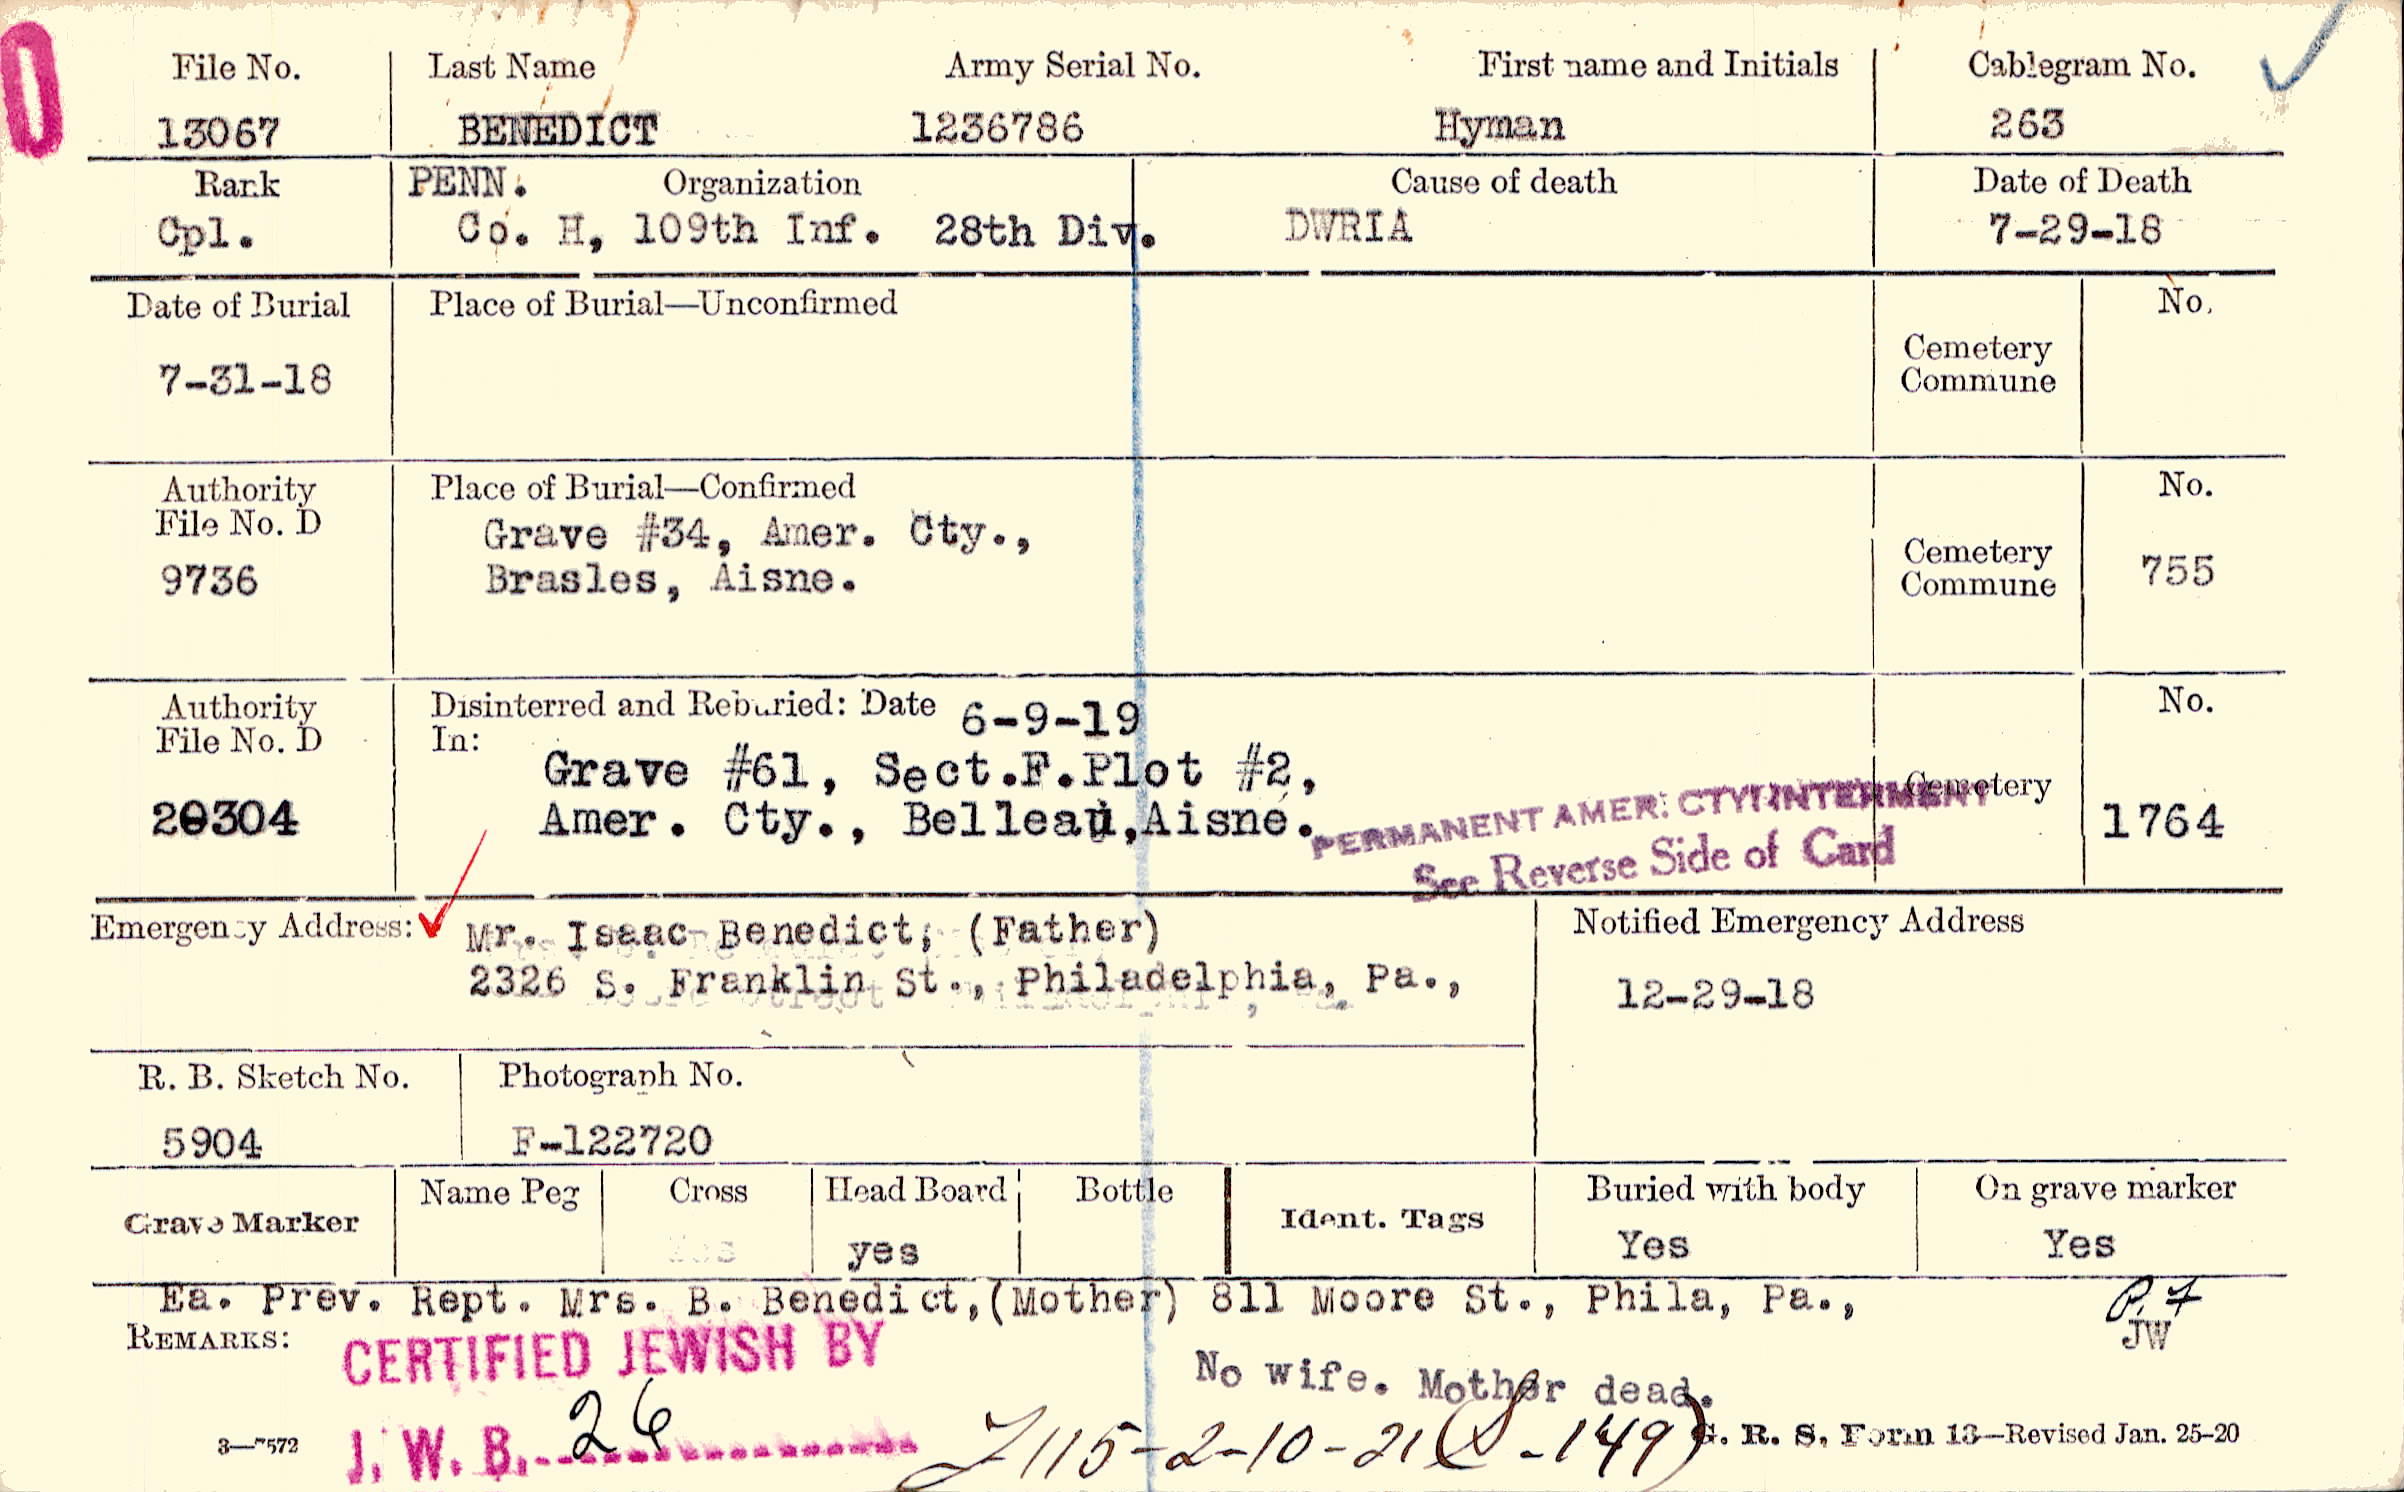 File No. Last Name Army Serial No. First name and Initials Cablegram No.
13067 BENEDICT 1236786 Hyman 263
Rank PENN. Organization Cause of death Date of Death
Cpl. Co. H, 109th Inf. 28th Div. DWRIA 7-29-18
Date of Burial Place of Burial—Unconfirmed No.
7-31-18
Cemetery
Commune
Authority Place of Burial—Confirmed No.
File No. D Grave #34, Amer. Cty.,
9736 Brasles, Aisne.
Cemetery
Commune
755
Authority Disinterred and Reburied: Date 6-9-19 No.
File No. D In:
Grave #61, Sect.F.Plot #2,
20304 Amer. Cty., Belleau,Aisne. Cemetery 1764
PERMANENT AMER. CTY. INTERMENT
See Reverse Side of Card
Emergency Address: Mr. Isaac Benedict, (Father) Notified Emergency Address
2326 S. Franklin St., Philadelphia, Pa., 12-29-18
R. B. Sketch No. Photograph No.
5904 F-122720
Grave Marker Name Peg Cross Head Board Bottle Ident. Tags Buried with body On grave marker
yes Yes Yes
Ea. Prev. Rept. Mrs. B. Benedict,(Mother) 811 Moore St., Phila, Pa.,
JW
REMARKS: CERTIFIED JEWISH BY
No wife. Mother dead.
J. W. B. 26
115-2-10-21
3—7572 G. R. S. Form 13—Revised Jan. 25-20